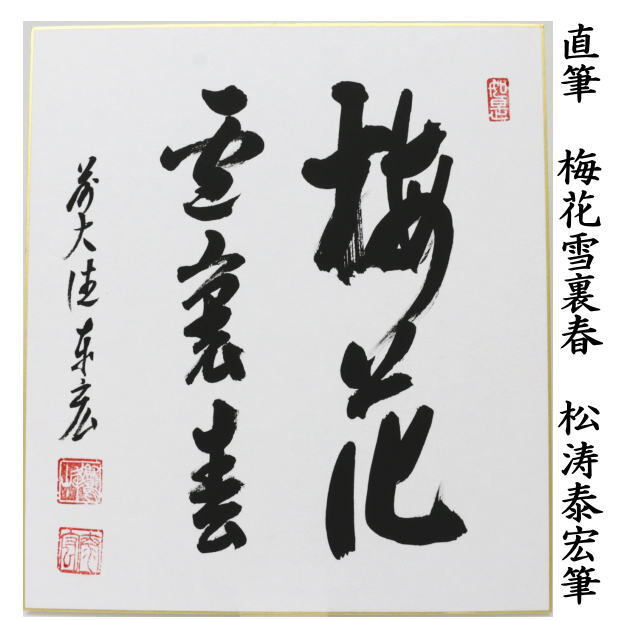 直筆 梅花雪裏春 松涛泰宏筆
梅花
雪裏春
前大徳泰宏